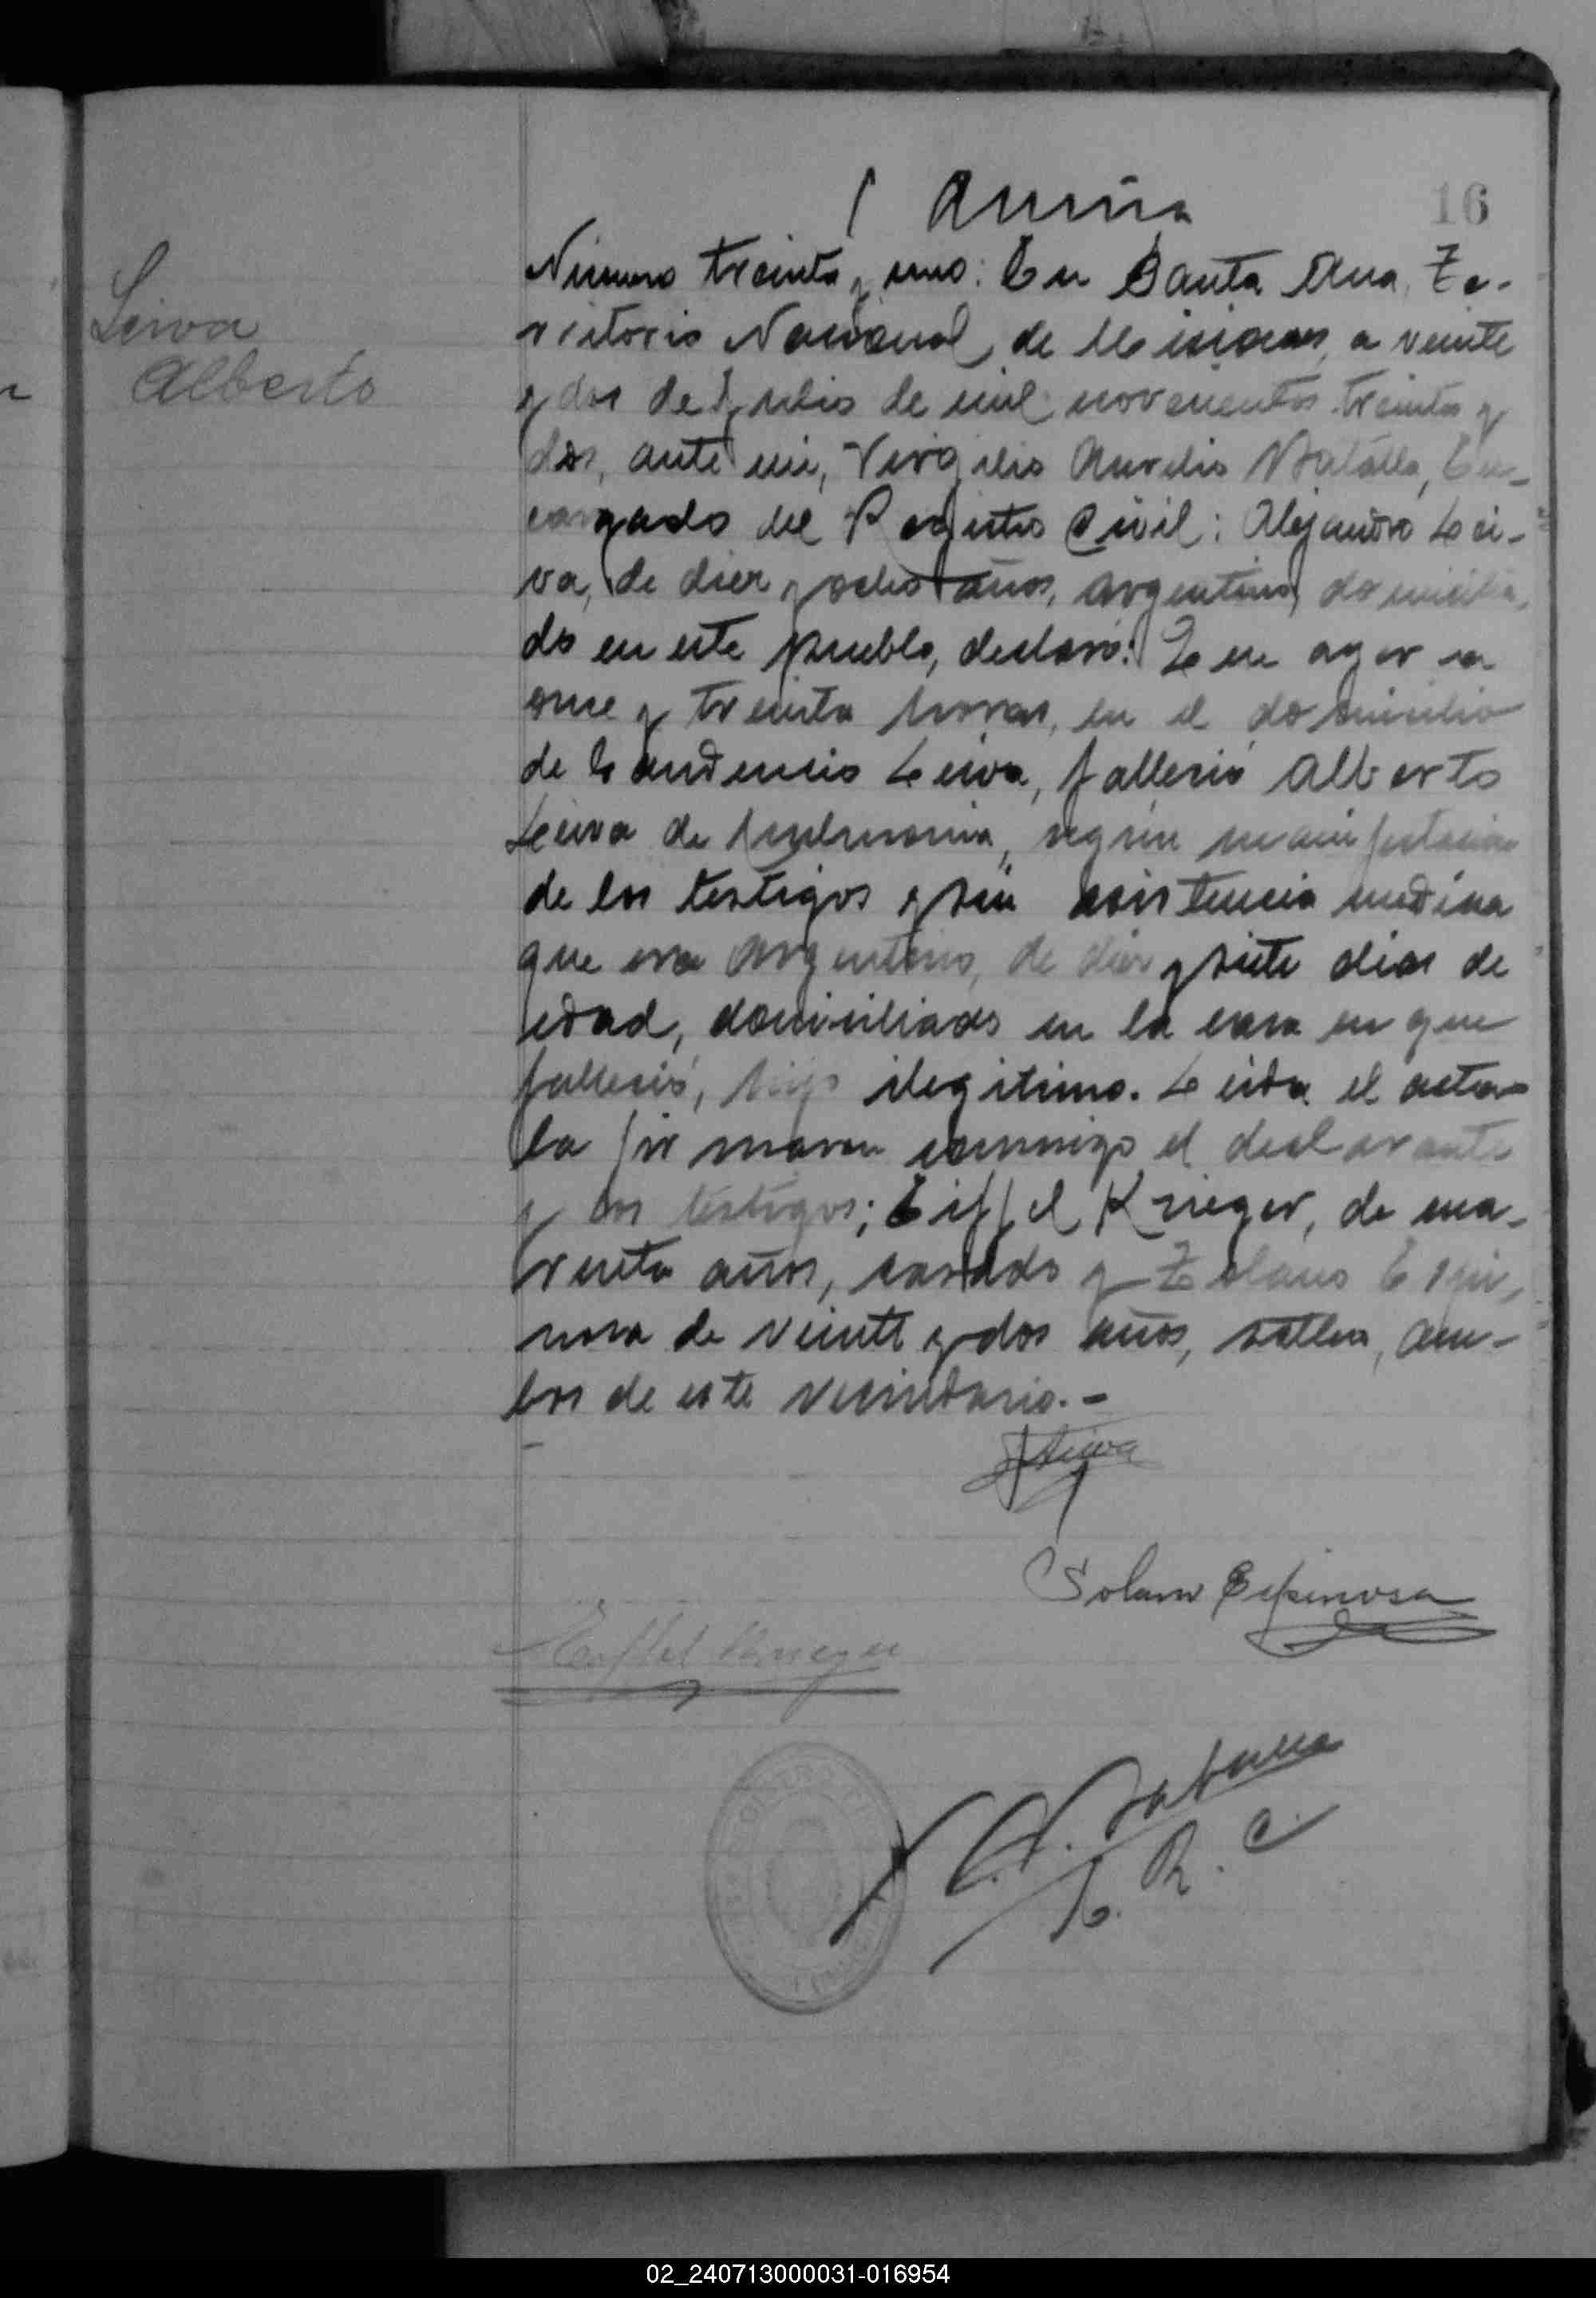 16
Leiva
Alberto
Número treinta y uno: En Santa Ana, Te-
rritorio Nacional de Misiones, a veinte
y dos de Julio de mil novecientos treinta y
dos, ante mi, Virgilio Aurelio Batalla, En-
cargado del Registro Civil: Alejandro Lei-
va, de diez y ocho años, argentino, domicilia-
do en este pueblo, declaró: Que ayer a
once y treinta horas, en el domicilio
de Laudencio Leiva, falleció Alberto
Leiva de pulmonia, según manifestación
de los testigos y sin asistencia médica
que era argentino, de diez y siete dias de
edad, domiciliado en la casa en que
falleció, hijo ilegitimo. Leida el acta
la firmaron conmigo el declarante
y los testigos; Eiffel Krieger, de cua-
renta años, casado y Zolano Espi-
nosa de veinte y dos años, soltero, am-
bos de este vecindario.-
Leiva
Solano Espinosa
Eiffel Krieger
V. A. Batalla
E. R. C.
02_240713000031-016954